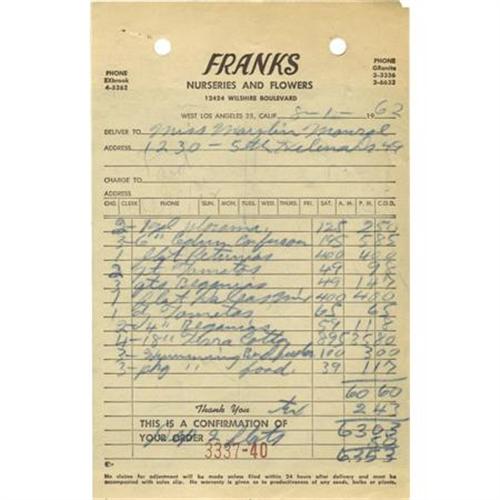 FRANKS
NURSERIES AND FLOWERS
12424 WILSHIRE BOULEVARD
PHONE
EXbrook
4-5262
PHONE
GRanite
3-3336
3-6632
WEST LOS ANGELES 25, CALIF. 8-1- 1962
DELIVER TO Miss Marylin Monroe
ADDRESS 1230-5th Helena Dr 49
CHARGE TO
ADDRESS
CHG. CLERK PHONE SUN. MON. TUES. WED. THUR. FRI. SAT. A.M. P.M. C.O.D.
2- 125 250
3- 6" 195 585
1 flat Petunias 400 400
2 Tomatos 49 98
3 Begonias 49 147
1 flat 400 400
1 Tomatos 65 65
2- 4" Begonias 59 118
4- 18" Terra Cotta 895 3580
3- Hummming Bird 100 300
3- pkg " food. 39 117
60 60
Thank You tax 2 43
THIS IS A CONFIRMATION OF 63 03
YOUR ORDER 2 flats 50
3337-40 63 53
No claims for adjustment will be made unless filed within 24 hours after delivery and must be
accompanied with sales slip. No warranty is given as to productiveness of any seeds, bulbs or plants.